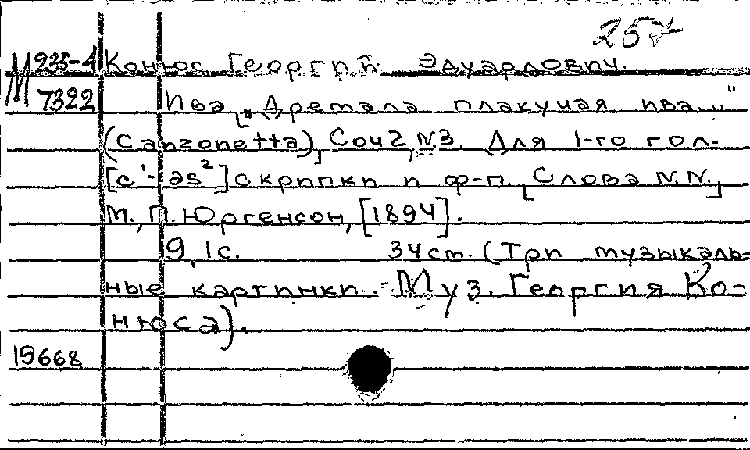 257
М 935-4 Конюс, Георгий Эдуардович.
7322 Ива ["Дремала плакучая ива..."
(Canzonetta)], Соч 2, №3. Для 1-го гол-
[c¹-as²] скрипки и ф-п. [Слова N.N.]
М., П. Юргенсон, [1894].
9, 1с. 34 см. (Три музыкаль-
ные картинки. Муз. Георгия Ко-
нюса).
15668